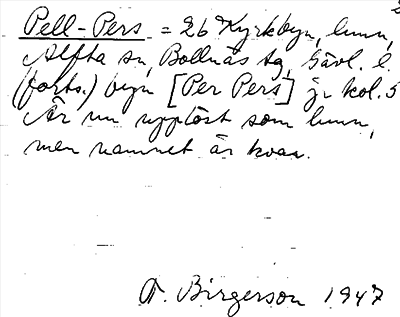 2
Pell-Pers = 26 Kyrkbyn, hmn,
Alfta sn, Bollnäs tg, Gävl. l.
(forts.) byn [Per Pers] jr kol. 5
Är nu upplöst som hmn,
men namnet är kvar.
A. Birgerson 1947